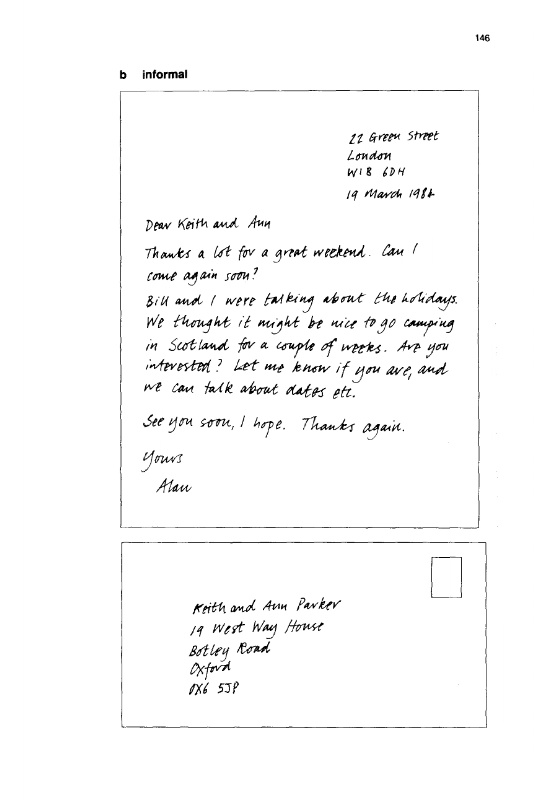 146
b informal
22 Green Street
London
W18 6DH
19 March 1982
Dear Keith and Ann
Thanks a lot for a great weekend. Can I
come again soon?
Bill and I were talking about the holidays.
We thought it might be nice to go camping
in Scotland for a couple of weeks. Are you
interested? Let me know if you are, and
we can talk about dates etc.
See you soon, I hope. Thanks again.
Yours
Alan
Keith and Ann Parker
19 West Way House
Botley Road
Oxford
OX6 5JP